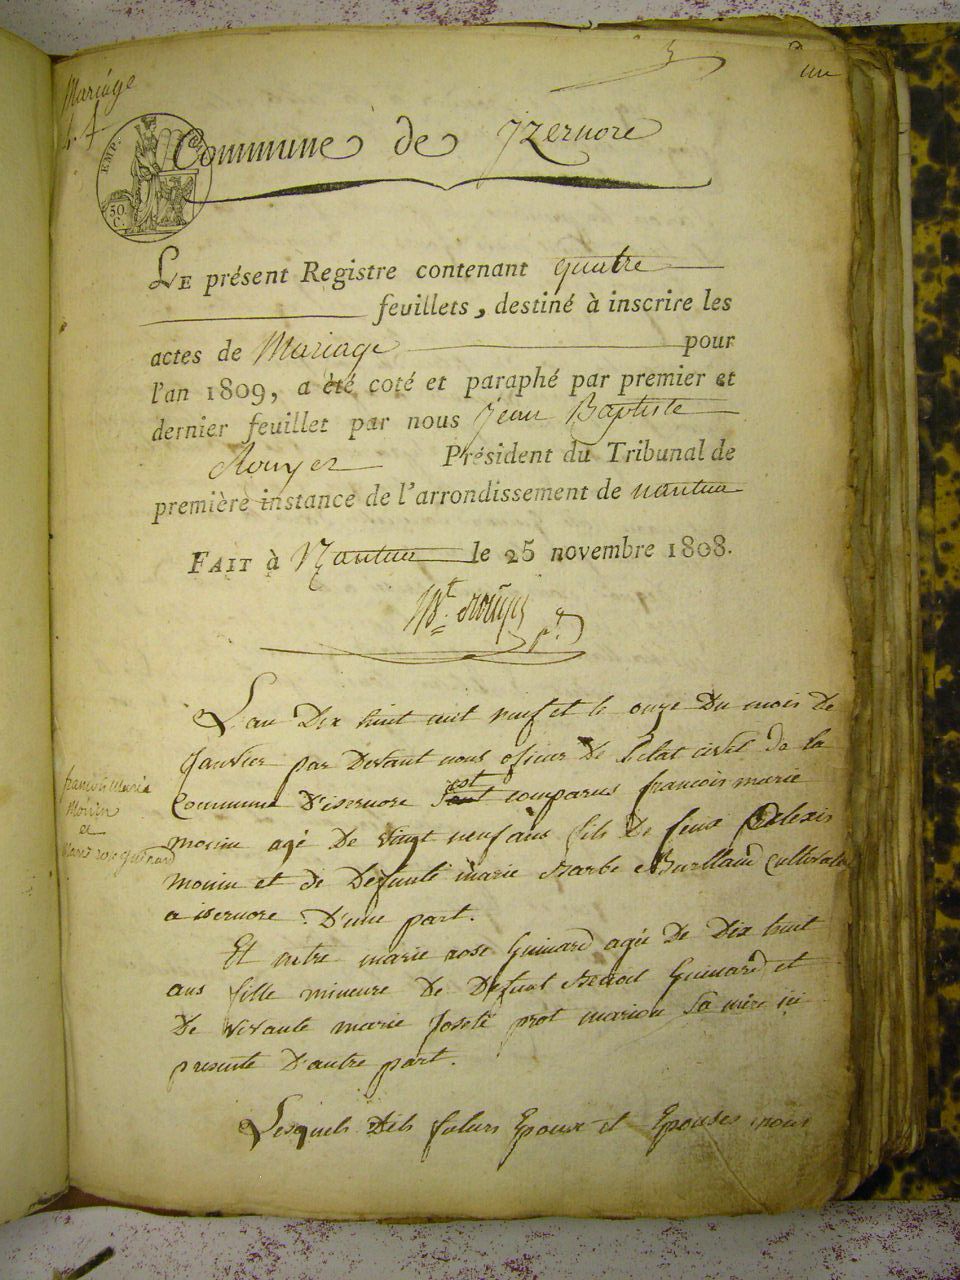 Mariage
un
Commune de Yzernore
EMP.
50
C.
LE présent Registre contenant quatre
feuillets, destiné à inscrire les
actes de Mariage pour
l'an 1809, a été coté et paraphé par premier et
dernier feuillet par nous Jean Baptiste
Rouyer Président du Tribunal de
première instance de l'arrondissement de nantua
FAIT à Nantua le 25 novembre 1808.
L'an Dix huit cent neuf et le onze Du mois De
Janvier par Devant nous oficier De l'état civil de la
est
Commune D'isernore comparus francois marie
monin agé De vingt neuf ans fils De feux Alexis
monin et de Defunte marie Barbe Burlland Cultivateur
a isernore D'une part.
francois Marie
Monin
et
Marie rose guinard
Et entre marie rose Guinard agée De Dix huit
ans fille mineure De Defunt Benoit Guinard et
De vivante marie Josete prot marion sa mère ici
presente D'autre part.
Lesquels Dits futurs Epoux et Epouses nous